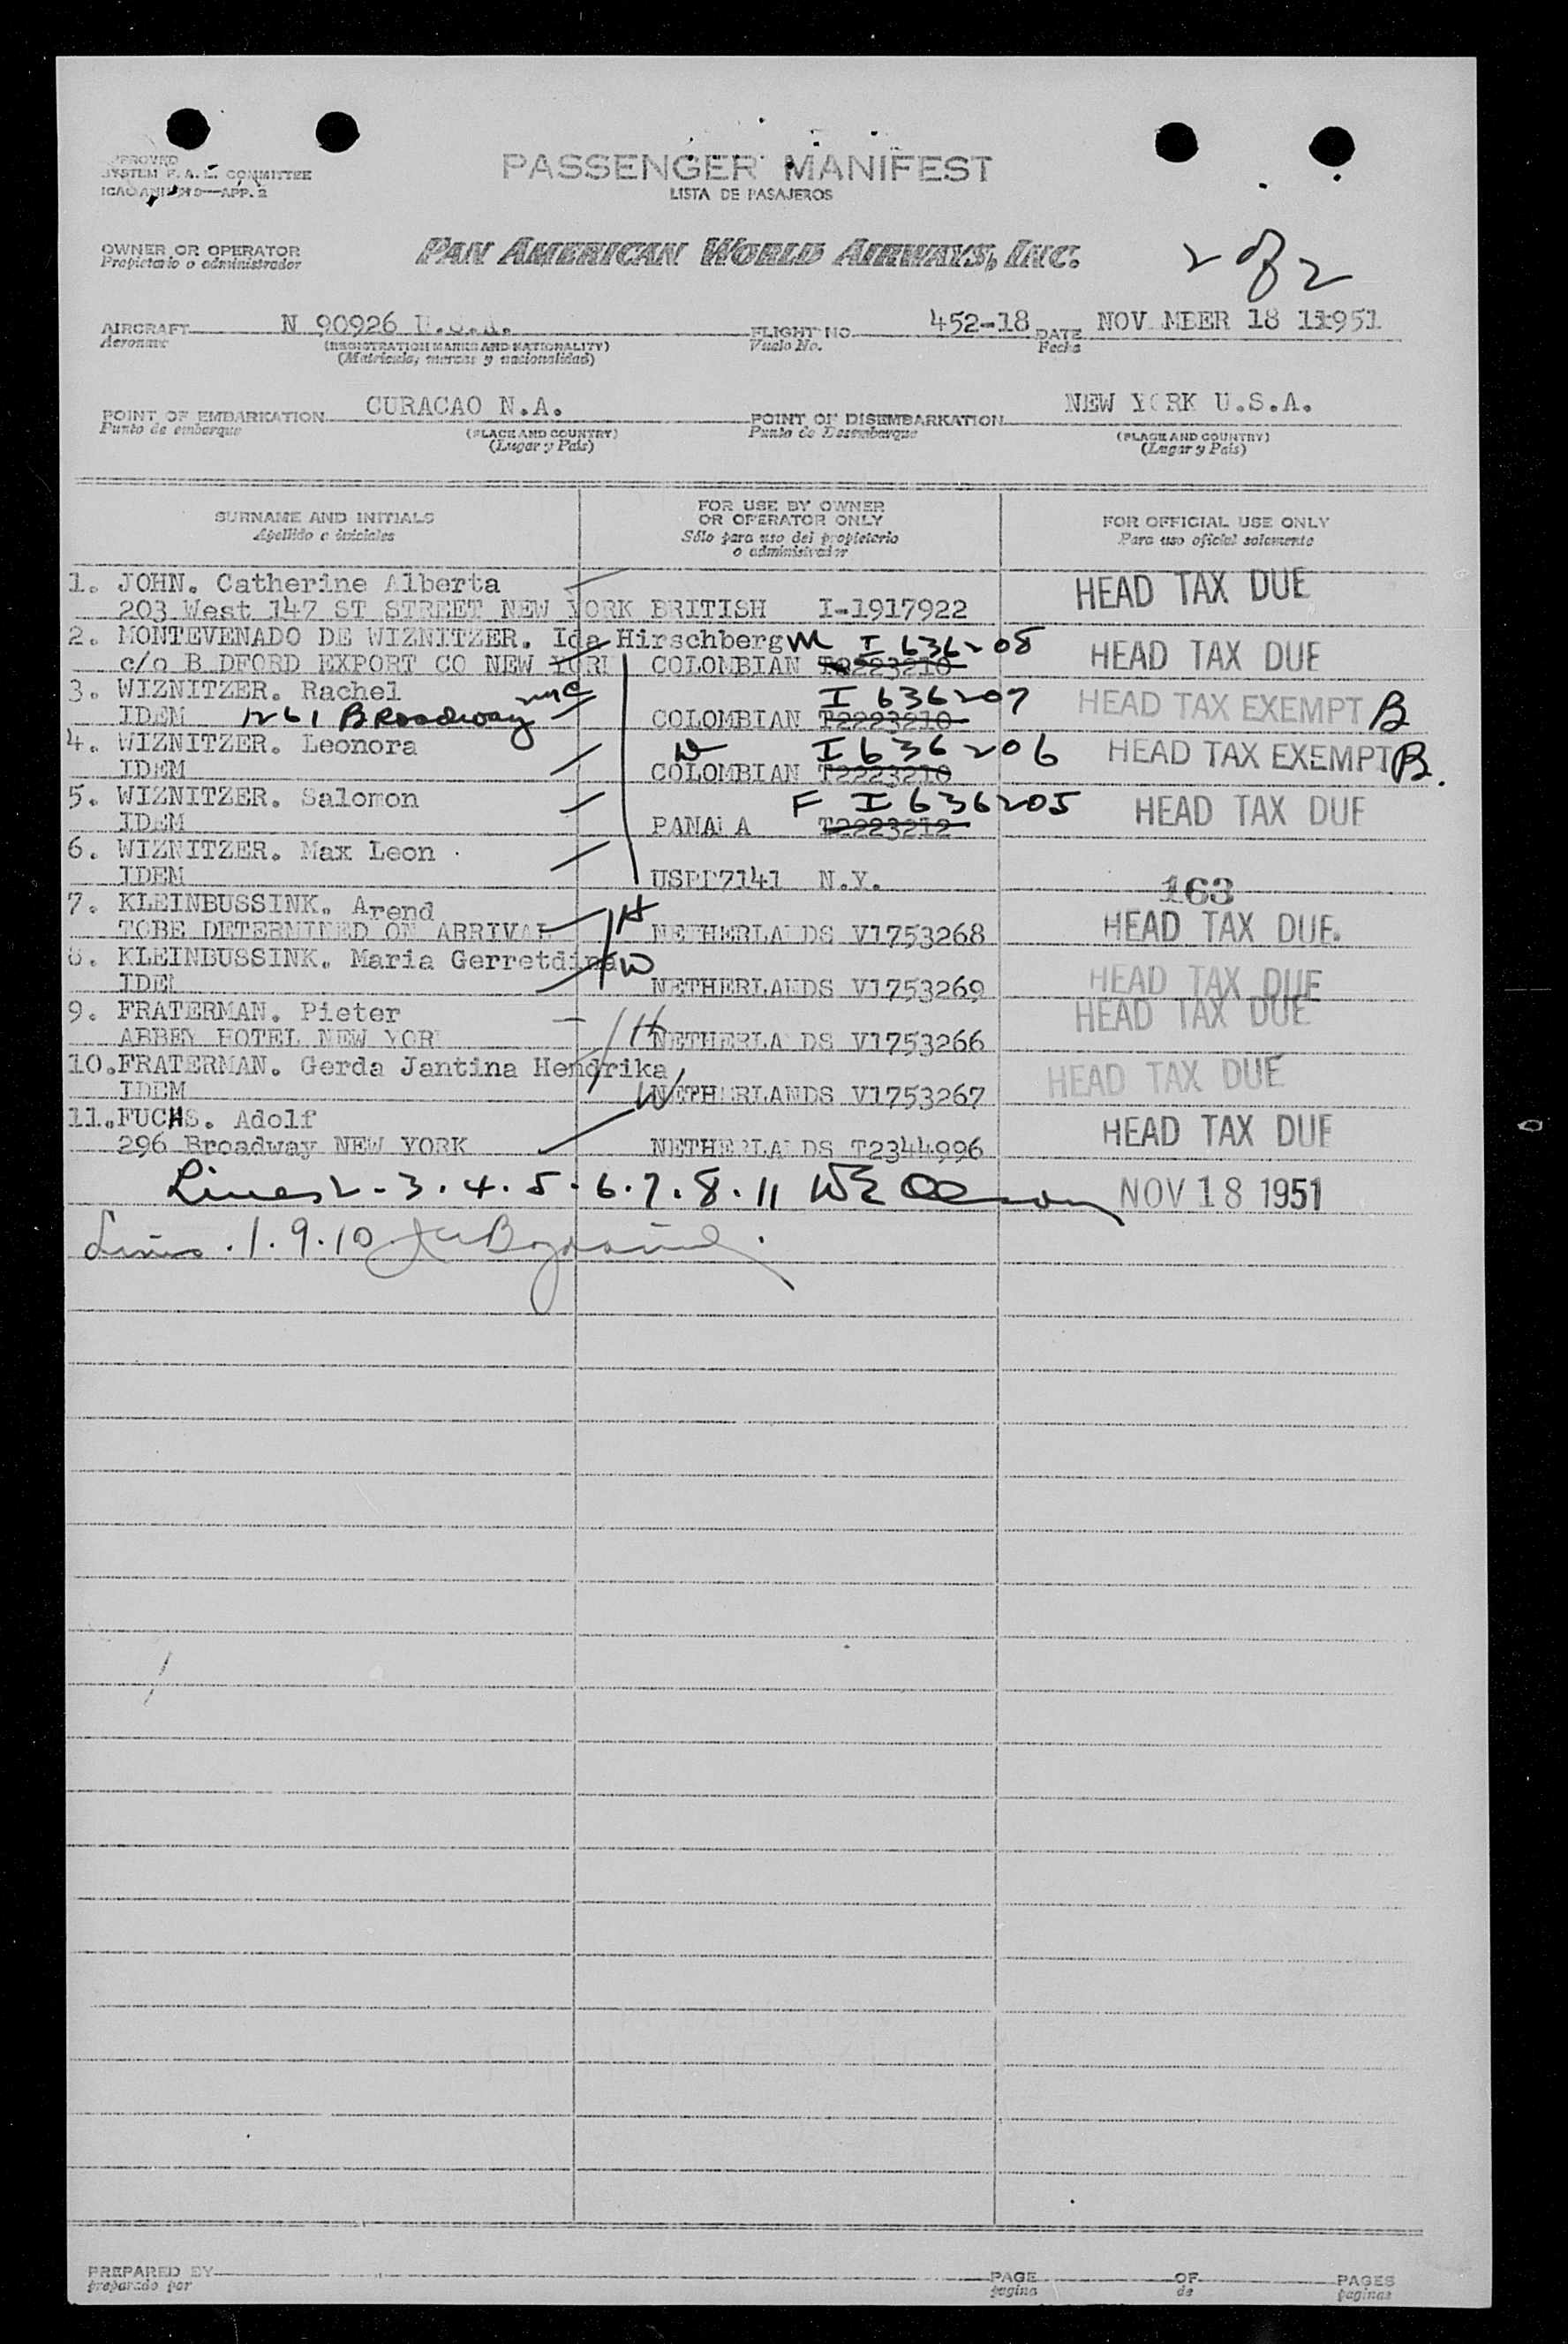 APPROVED
SYSTEM F. A. L. COMMITTEE
ICAO ANNEX 9—APP. 2
PASSENGER MANIFEST
LISTA DE PASAJEROS
OWNER OR OPERATOR
Propietario o administrador
PAN AMERICAN WORLD AIRWAYS, INC.
2 of 2
AIRCRAFT N 90926 U.S.A. FLIGHT NO. 452-18 DATE NOV MBER 18 11951
Aeronave (REGISTRATION MARKS AND NATIONALITY) Vuelo No. Fecha
(Matrícula, marcas y nacionalidad)
POINT OF EMBARKATION CURACAO N.A. POINT OF DISEMBARKATION NEW YORK U.S.A.
Punto de embarque (PLACE AND COUNTRY) Punto de Desembarque (PLACE AND COUNTRY)
(Lugar y País) (Lugar y País)
SURNAME AND INITIALS FOR USE BY OWNER OR OPERATOR ONLY FOR OFFICIAL USE ONLY
Apellido e iniciales Sólo para uso del propietario o administrador Para uso oficial solamente
1. JOHN. Catherine Alberta HEAD TAX DUE
203 West 147 ST STREET NEW YORK BRITISH I-1917922
2. MONTEVENADO DE WIZNITZER. Ida Hirschberg M I 636208 HEAD TAX DUE
c/o B DFORD EXPORT CO NEW YORK COLOMBIAN T2223210
3. WIZNITZER. Rachel I 636207 HEAD TAX EXEMPT B
IDEM 1261 Broadway nyc COLOMBIAN T2223210
4. WIZNITZER. Leonora I 636206 HEAD TAX EXEMPT B.
IDEM COLOMBIAN T2223210
5. WIZNITZER. Salomon F I 636205 HEAD TAX DUE
IDEM PANAMA T2223212
6. WIZNITZER. Max Leon
IDEM USPP7141 N.Y. 163
7. KLEINBUSSINK. Arend H HEAD TAX DUE
TOBE DETERMINED ON ARRIVAL NETHERLANDS V1753268
8. KLEINBUSSINK. Maria Gerretdina W HEAD TAX DUE
IDEM NETHERLANDS V1753269
9. FRATERMAN. Pieter H HEAD TAX DUE
ABBEY HOTEL NEW YORK NETHERLANDS V1753266
10. FRATERMAN. Gerda Jantina Hendrika W HEAD TAX DUE
IDEM NETHERLANDS V1753267
11. FUCHS. Adolf HEAD TAX DUE
296 Broadway NEW YORK NETHERLANDS T2344996
Lines 2-3.4.5.6.7.8.11 NOV 18 1951
Lines .1.9.10
PREPARED BY PAGE OF PAGES
preparado por pagina de paginas